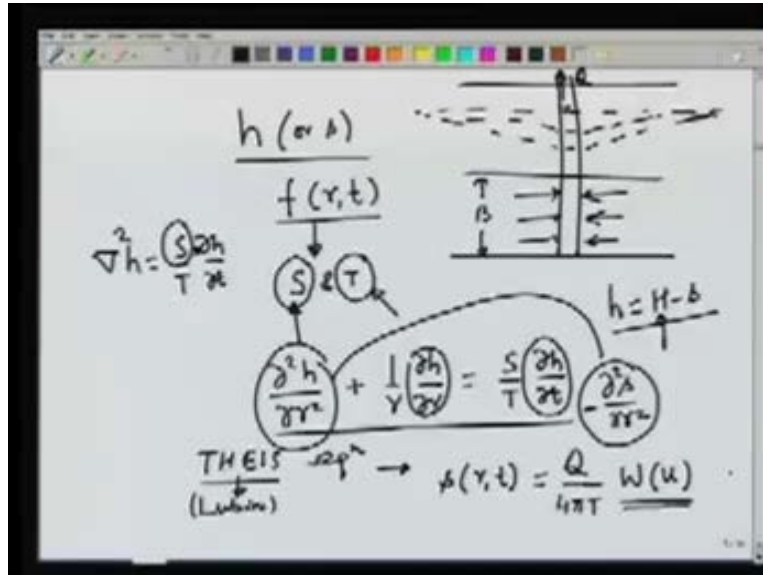 Q
h (or s)
f(r,t)
∇²h = S/T ∂h/∂t
S & T
T
B
h = H - s
∂²h/∂r² + 1/r ∂h/∂r = S/T ∂h/∂t
- ∂²s/∂r²
THEIS eqⁿ → s(r,t) = Q/4πT W(u)